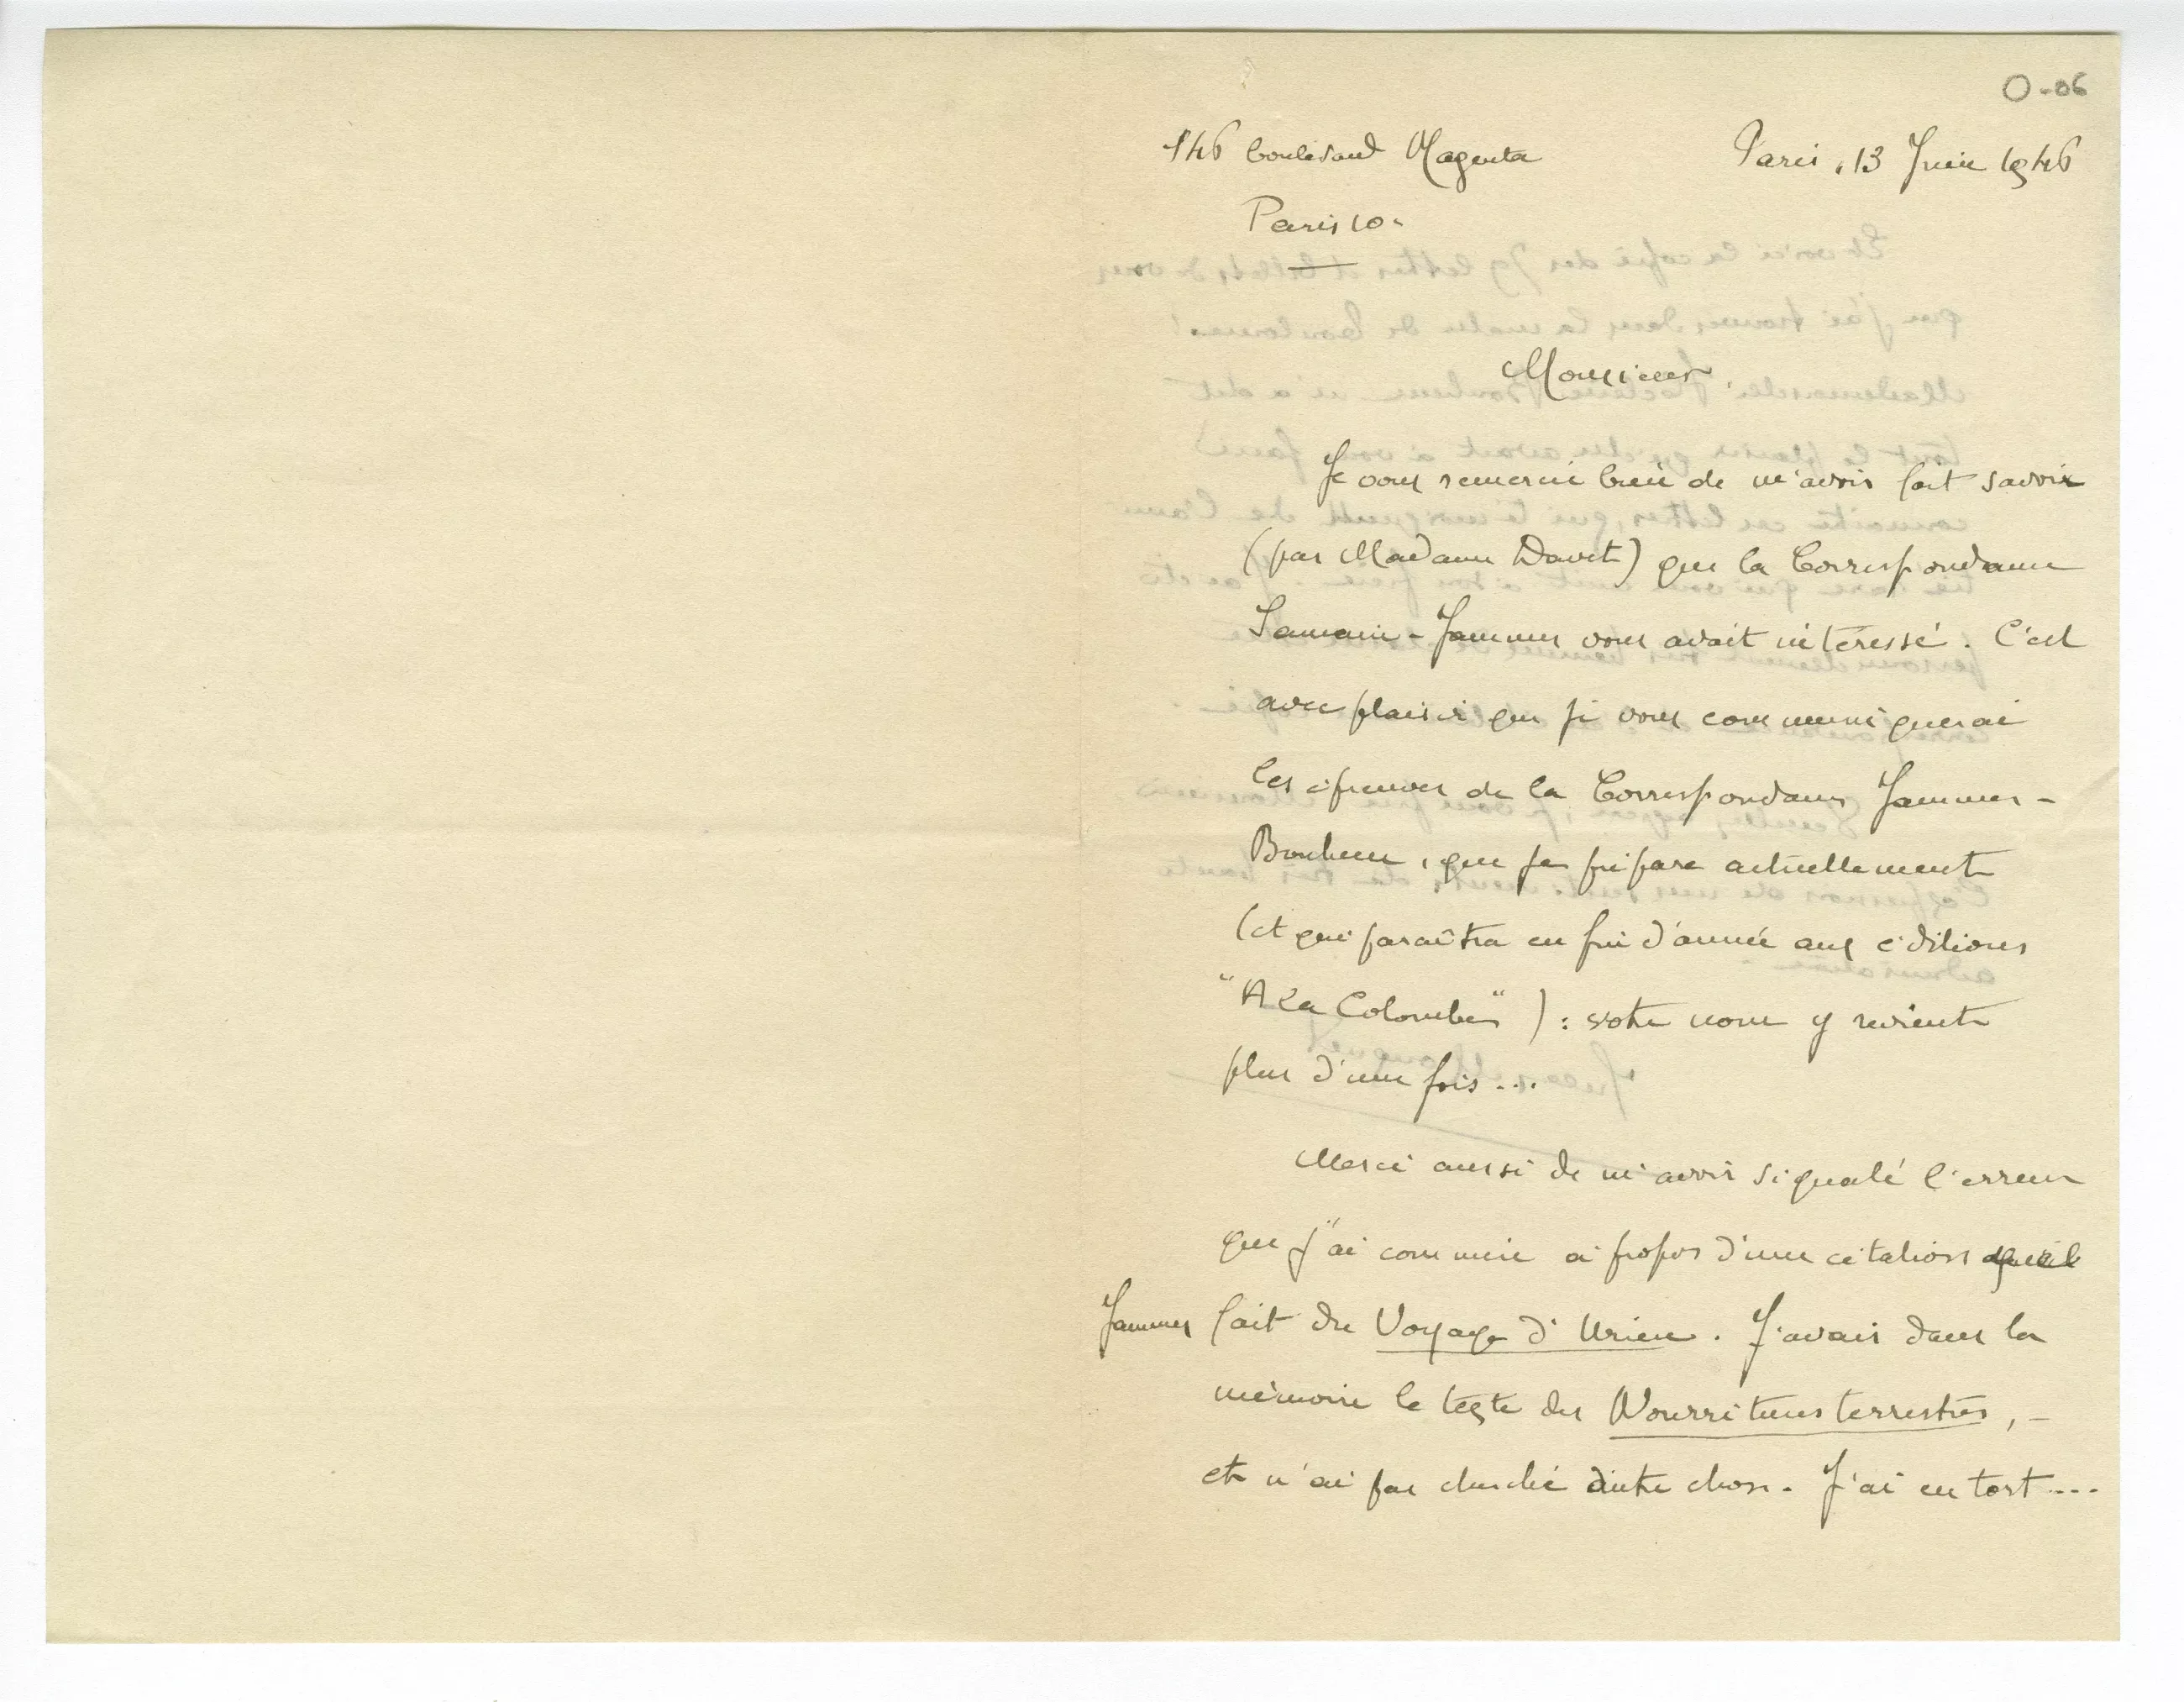 O-06
146 boulevard Magenta
Paris, 13 Juin 1946
Paris 10e
Monsieur,
Je vous remercie bien de m'avoir fait savoir
(par Madame Davet) que la Correspondance
Samain-Jammes vous avait intéressé. C'est
avec plaisir que je vous communiquerai
les épreuves de la Correspondance Jammes-
Bonheur, que je prépare actuellement
(et qui paraîtra en fin d'année aux éditions
"A la Colombe") : votre nom y revient
plus d'une fois...
Merci aussi de m'avoir signalé l'erreur
que j'ai commise à propos d'une citation qu'il
Jammes fait du Voyage d'Urien. J'avais dans la
mémoire le texte des Nourritures terrestres, -
et n'ai pas cherché autre chose. J'ai eu tort...